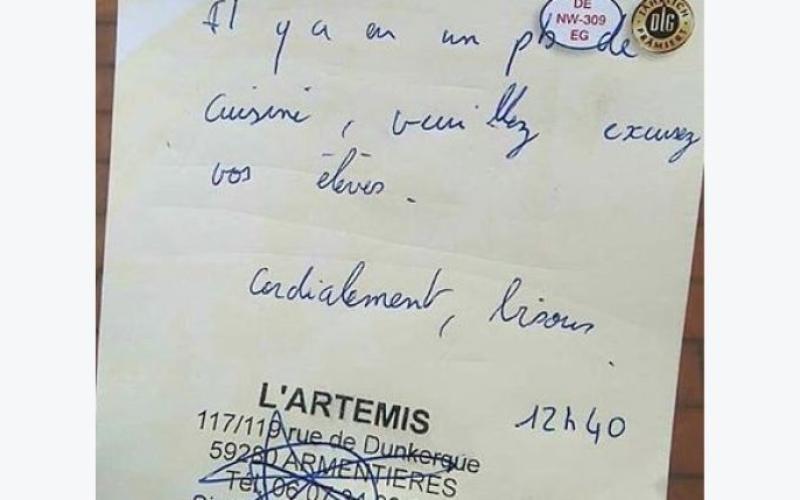 Il y a eu un pb de
cuisine, veuillez excusez
vos élèves.
Cordialement, bisous.
12h40
L'ARTEMIS
117/119 rue de Dunkerque
59280 ARMENTIERES
Tél. 06 07
DE
NW-309
EG
DLG
JÄHRLICH
PRÄMIERT